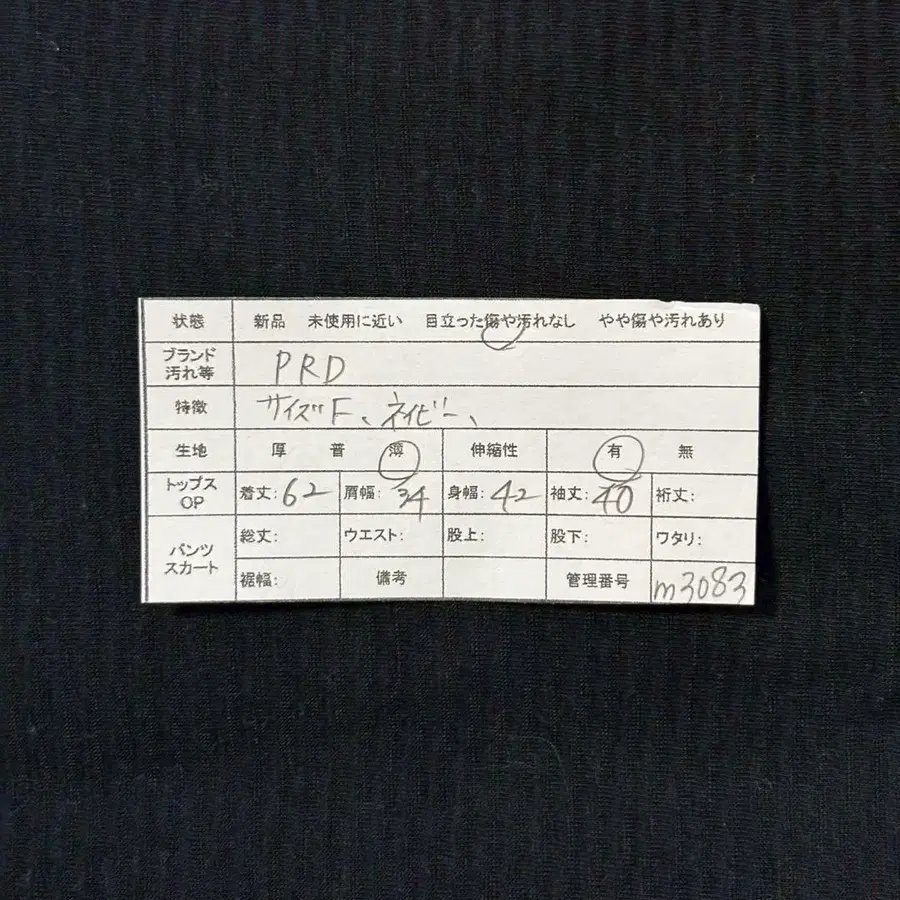 状態 新品 未使用に近い 目立った傷や汚れなし やや傷や汚れあり
ブランド
汚れ等 PRD
特徴 サイズF、ネイビー、
生地 厚 普 薄 伸縮性 有 無
トップス
OP 着丈:62 肩幅:34 身幅:42 袖丈:40 裄丈:
パンツ
スカート 総丈: ウエスト: 股上: 股下: ワタリ:
裾幅: 備考 管理番号 m3083